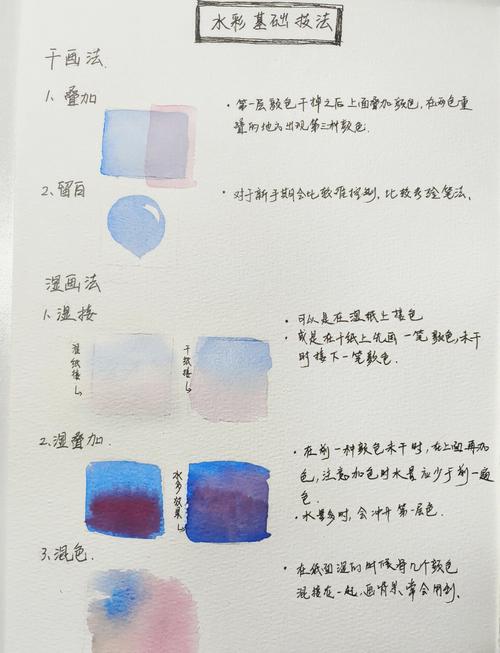 水彩基础技法
干画法.
1、叠加
·第一层颜色干掉之后上面叠加颜色,在两色重
叠的地方出现第三种颜色.
2、留白
·对于新手期会比较难控制,比较考验笔法、
湿画法
1、湿接
·可以是在湿纸上接色
·或是在干纸上先画一笔颜色,未干
时接下一笔颜色.
湿纸接
干纸接
2、湿叠加.
·在前一种颜色未干时,在上面再加
色,注意加色时水量应少于前一遍
色.
·水量多时,会冲开第一层色.
水多效果
3、混色
·在纸面湿的时候将几个颜色
混接在一起,画背景常会用到.